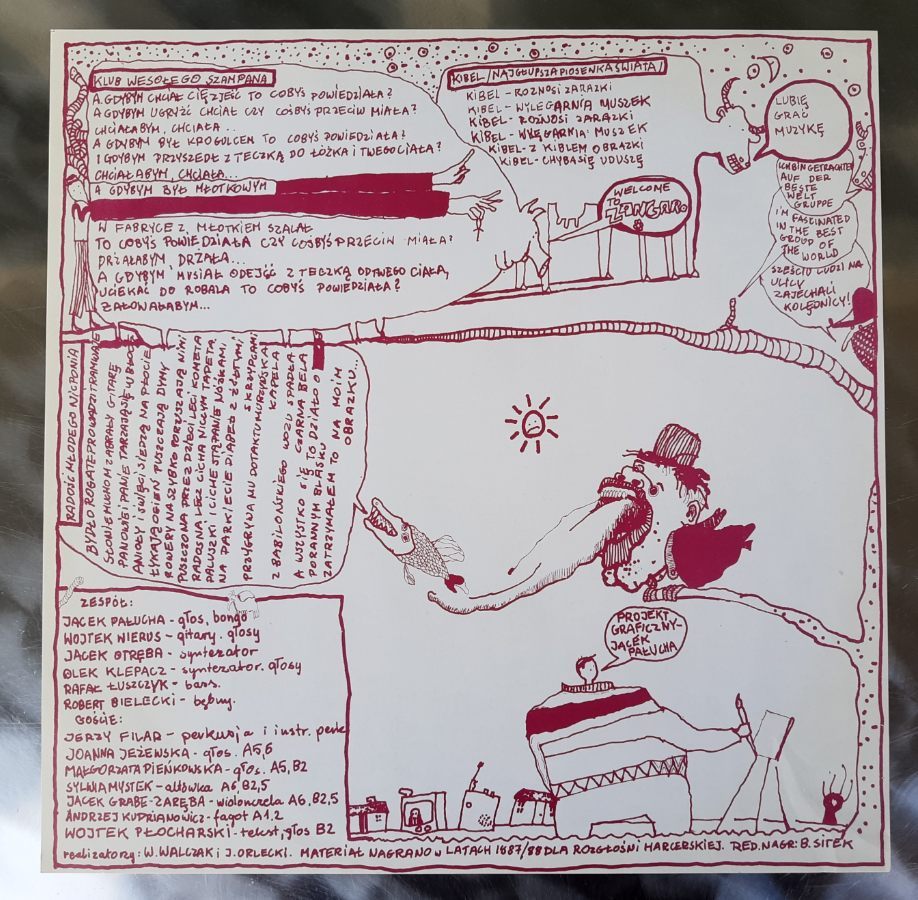 KLUB WESOŁEGO SZAMPANA
A GDYBYM CHCIAŁ CIĘ ZJEŚĆ TO COBYŚ POWIEDZIAŁA?
A GDYBYM UGRYŹĆ CHCIAŁ CZY COŚBYŚ PRZECIW MIAŁA?
CHCIAŁABYM, CHCIAŁA...
A GDYBYM BYŁ KROGULCEM TO COBYŚ POWIEDZIAŁA?
I GDYBYM PRZYSZEDŁ Z TECZKĄ DO ŁÓŻKA I TWEGO CIAŁA?
CHCIAŁABYM, CHCIAŁA...
A GDYBYM BYŁ MŁOTKOWYM
W FABRYCE Z MŁOTKIEM SZALAŁ
TO COBYŚ POWIEDZIAŁA CZY COŚBYŚ PRZECIW MIAŁA?
DRŻAŁABYM, DRŻAŁA...
A GDYBYM MUSIAŁ ODEJŚĆ Z TECZKĄ OD TWEGO CIAŁA,
UCIEKAĆ DO ROBALA TO COBYŚ POWIEDZIAŁA?
ZAŁOWAŁABYM...
KIBEL /NAJGŁUPSZA PIOSENKA ŚWIATA/
KIBEL - ROZNOSI ZARAZKI
KIBEL - WYLĘGARNIA MUSZEK
KIBEL - ROZNOSI ZARAZKI
KIBEL - WYLĘGARNIA MUSZEK
KIBEL - Z KIBLEM OBRAZKI
KIBEL - CHYBA SIĘ UDUSZĘ
WELCOME
TO
ZANGARO
LUBIĘ
GRAĆ
MUZYKĘ
ICH BIN GETRACHTEN
AUF DER
BESTE
WELT
GRUPPE
I'M FASCINATED
IN THE BEST
GROUP OF
THE WORLD
SZEŚCIU LUDZI NA
ULICY
ZAJECHALI
KOLĘDNICY!
RADOŚĆ MŁODEGO NICPONIA
BYDŁO ROGATE PROWADZI TRAMWAJE
SŁONIE MUCHOM ZABRAŁY GITARĘ
PANOWIE I PANIE TARZAJĄ SIĘ W BŁOCIE
ANIOŁY I ŚWIĘCI SIEDZĄ NA PŁOCIE
ŁYKAJĄ OGIEŃ PUSZCZAJĄ DYMY
ROWERY NA SZYBKO PORUSZAJĄ NIMI
PUSZCZONA PRZEZ DZIECI LECI KOMETA
RADOSNA LECZ CICHA NICZYM TAPETA
PALUSZKI I CICHE STĄPANIE NÓŻKAMI
NA PARKIECIE DIABEŁ Z ŻÓŁTYMI
SKRZYPCAMI
PRZYGRYWA MU DO TAKTU MURZYŃSKA
KAPELA
Z BABILOŃSKIEGO WOZU SPADŁA
CZARNA BELA
A WSZYSTKO SIĘ TO DZIAŁO O
PORANNYM BLASKU
ZATRZYMAŁEM TO NA MOIM
OBRAZKU...
ZESPÓŁ:
JACEK PAŁUCHA - głos, bongo
WOJTEK NIERUS - gitary. głosy
JACEK OTRĘBA - syntezator
OLEK KLEPACZ - syntezator. głosy
RAFAŁ ŁUSZCZYK - bass.
ROBERT BIELECKI - bębny.
GOŚCIE:
JERZY FILAR - perkusja i instr. perk
JOANNA JEŻEWSKA - głos. A5,6
MAŁGORZATA PIEŃKOWSKA - głos. A5, B2
SYLWIA MYSTEK - altówka A6, B2,5
JACEK GRABE-ZARĘBA - wiolonczela A6, B2,5
ANDRZEJ KUDRIANOWICZ - fagot A1.2
WOJTEK PŁOCHARSKI - tekst, głos B2
PROJEKT
GRAFICZNY-
JACEK
PAŁUCHA
realizatorzy: W. WALCZAK i J. ORLECKI. MATERIAŁ NAGRANO w LATACH 1987/88 DLA ROZGŁOŚNI HARCERSKIEJ. RED. NAGR: B. SITEK